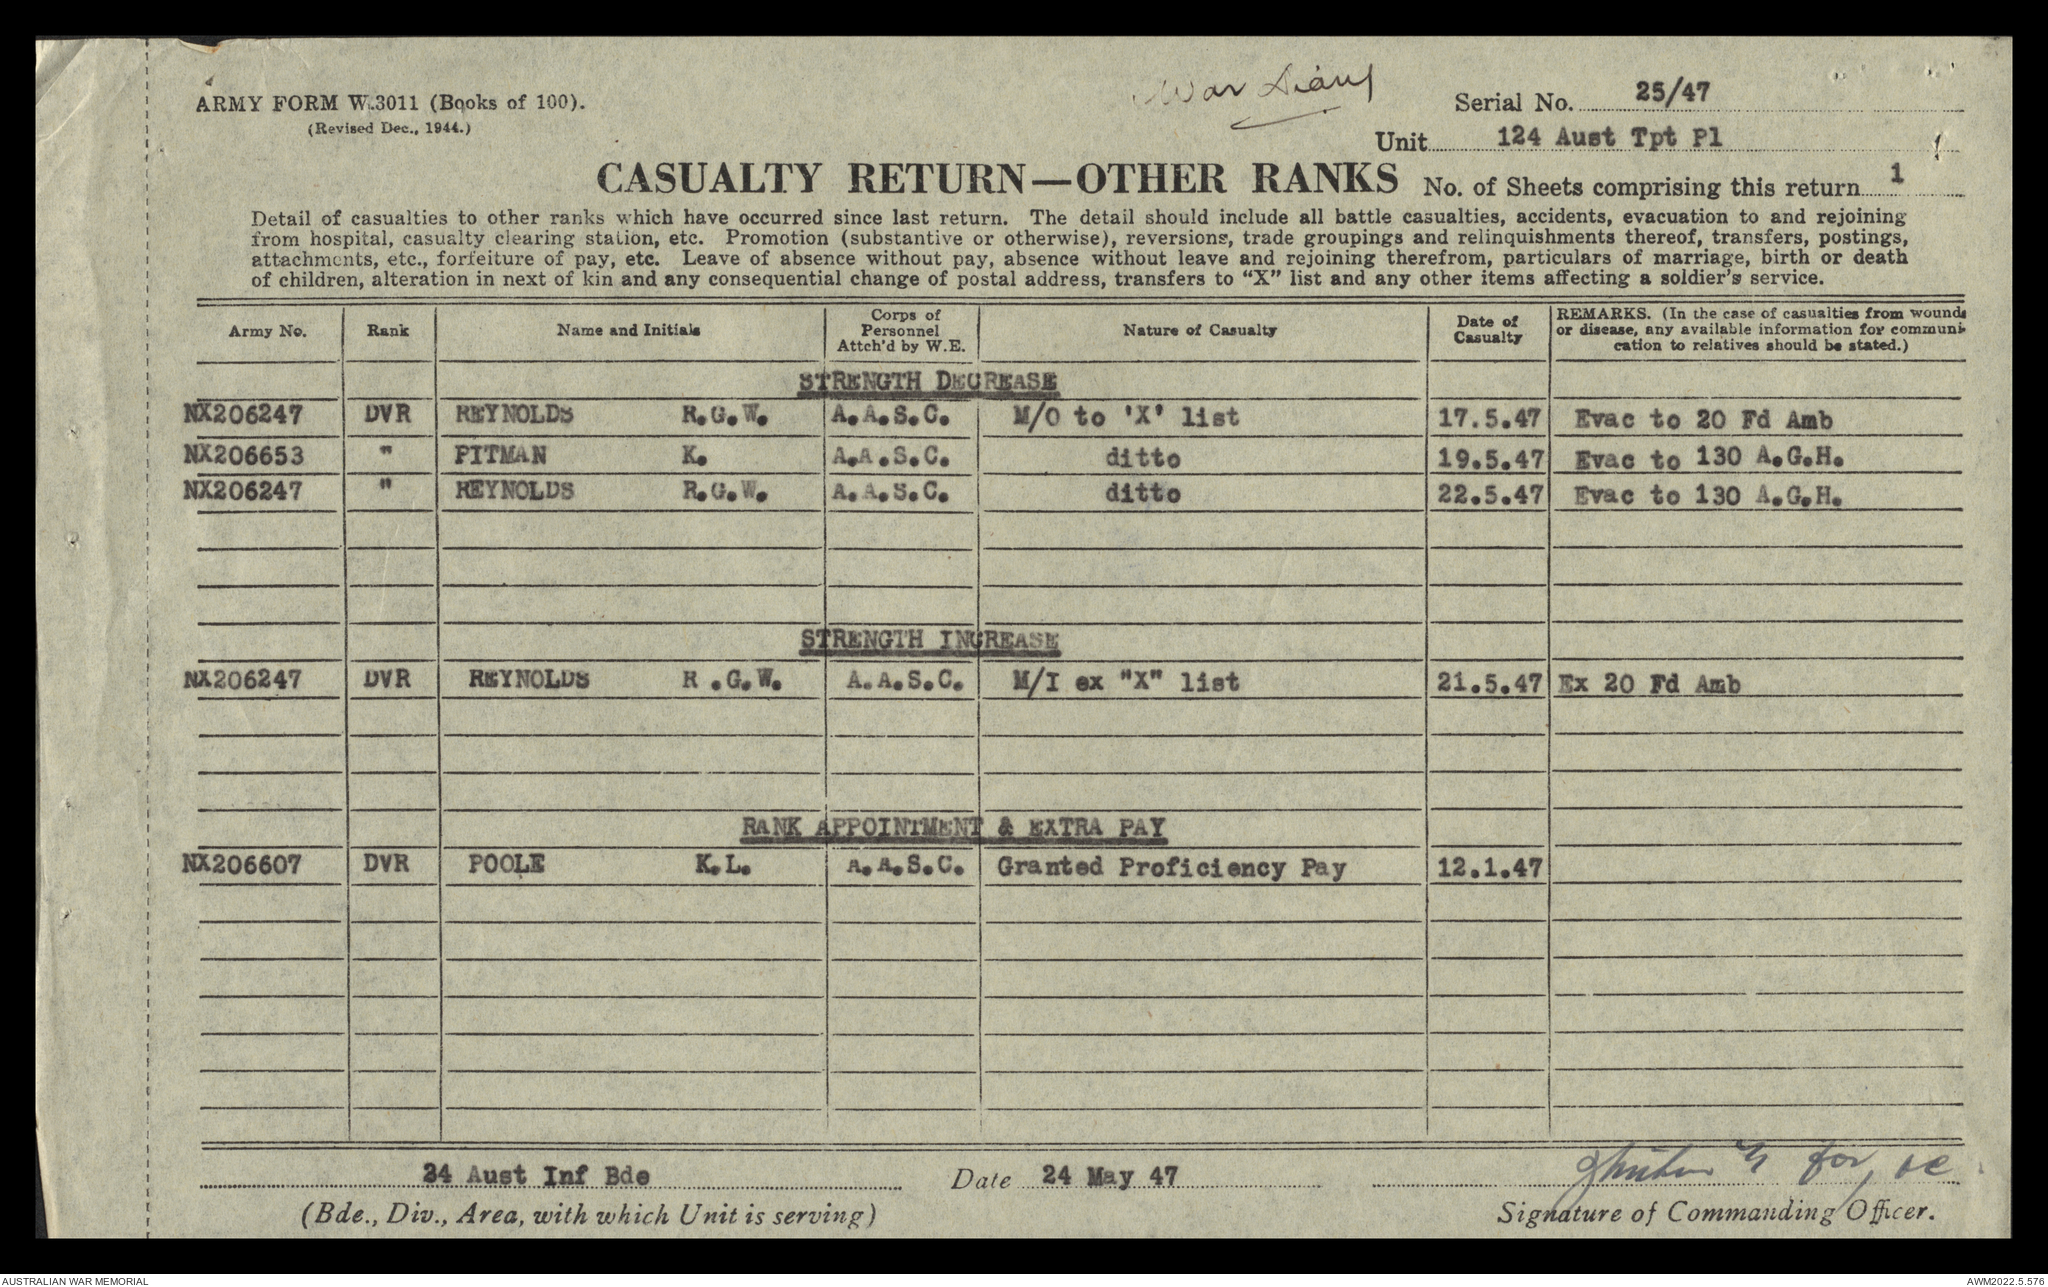 War Diary
ARMY FORM W.3011 (Books of 100).
(Revised Dec., 1944.)
Serial No. 25/47
Unit 124 Aust Tpt Pl
CASUALTY RETURN—OTHER RANKS
No. of Sheets comprising this return 1
Detail of casualties to other ranks which have occurred since last return. The detail should include all battle casualties, accidents, evacuation to and rejoining
from hospital, casualty clearing station, etc. Promotion (substantive or otherwise), reversions, trade groupings and relinquishments thereof, transfers, postings,
attachments, etc., forfeiture of pay, etc. Leave of absence without pay, absence without leave and rejoining therefrom, particulars of marriage, birth or death
of children, alteration in next of kin and any consequential change of postal address, transfers to "X" list and any other items affecting a soldier's service.
Army No.
Rank
Name and Initials
Corps of
Personnel
Attch'd by W.E.
Nature of Casualty
Date of
Casualty
REMARKS. (In the case of casualties from wounds
or disease, any available information for communi-
cation to relatives should be stated.)
STRENGTH DECREASE
NX206247 DVR REYNOLDS R.G.W. A.A.S.C. M/O to 'X' list 17.5.47 Evac to 20 Fd Amb
NX206653 " PITMAN K. A.A.S.C. ditto 19.5.47 Evac to 130 A.G.H.
NX206247 " REYNOLDS R.G.W. A.A.S.C. ditto 22.5.47 Evac to 130 A.G.H.
STRENGTH INCREASE
NX206247 DVR REYNOLDS R.G.W. A.A.S.C. M/I ex "X" list 21.5.47 Ex 20 Fd Amb
RANK APPOINTMENT & EXTRA PAY
NX206607 DVR POOLE K.L. A.A.S.C. Granted Proficiency Pay 12.1.47
34 Aust Inf Bde
Date 24 May 47
for OC
(Bde., Div., Area, with which Unit is serving)
Signature of Commanding Officer.
AUSTRALIAN WAR MEMORIAL
AWM2022.5.576